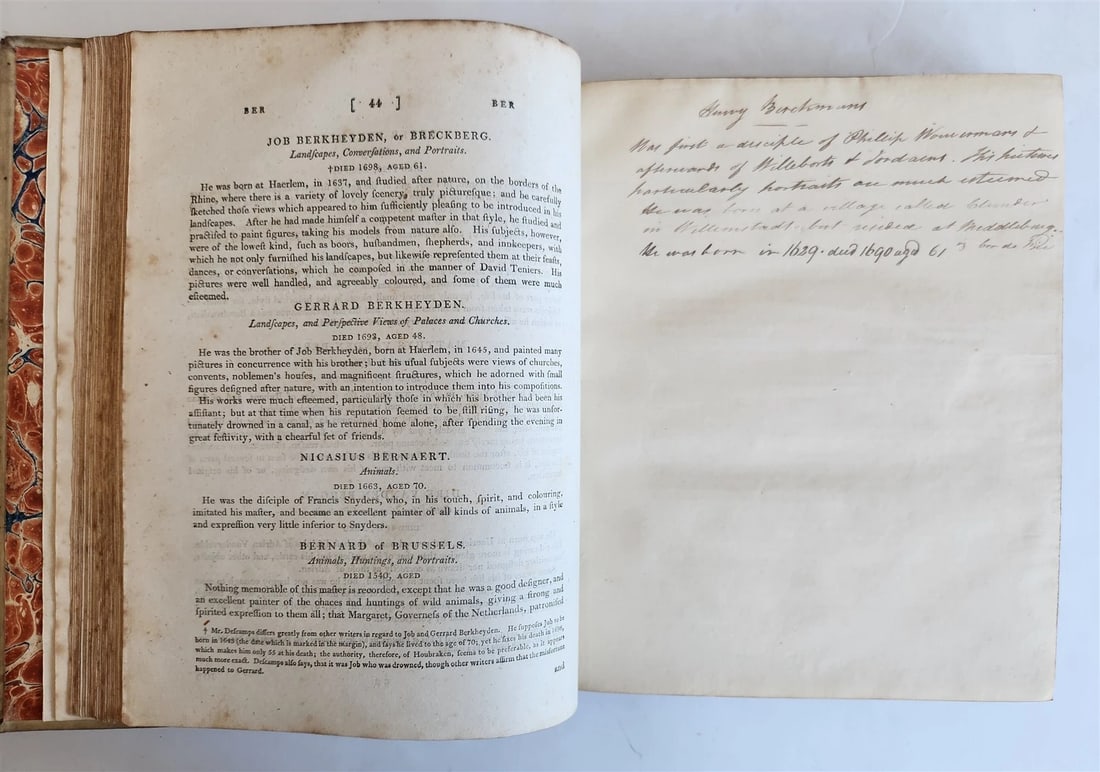 BER [ 44 ] BER
JOB BERKHEYDEN, or BRECKBERG.
Landſcapes, Converſations, and Portraits.
†DIED 1698, AGED 61.
He was born at Haerlem, in 1637, and ſtudied after nature, on the borders of the
Rhine, where there is a variety of lovely ſcenery, truly pictureſque; and he carefully
ſketched thoſe views which appeared to him ſufficiently pleaſing to be introduced in his
landſcapes. After he had made himſelf a competent maſter in that ſtyle, he ſtudied and
practiſed to paint figures, taking his models from nature alſo. His ſubjects, however,
were of the loweſt kind, ſuch as boors, huſbandmen, ſhepherds, and innkeepers, with
which he not only furniſhed his landſcapes, but likewiſe repreſented them at their feaſts,
dances, or converſations, which he compoſed in the manner of David Teniers. His
pictures were well handled, and agreeably coloured, and ſome of them were much
eſteemed.
GERRARD BERKHEYDEN.
Landſcapes, and Perſpective Views of Palaces and Churches.
DIED 1693, AGED 48.
He was the brother of Job Berkheyden, born at Haerlem, in 1645, and painted many
pictures in concurrence with his brother; but his uſual ſubjects were views of churches,
convents, noblemen's houſes, and magnificent ſtructures, which he adorned with ſmall
figures deſigned after nature, with an intention to introduce them into his compoſitions.
His works were much eſteemed, particularly thoſe in which his brother had been his
aſſiſtant; but at that time when his reputation ſeemed to be ſtill riſing, he was unfor-
tunately drowned in a canal, as he returned home alone, after ſpending the evening in
great feſtivity, with a chearful ſet of friends.
NICASIUS BERNAERT.
Animals.
DIED 1663, AGED 70.
He was the diſciple of Francis Snyders, who, in his touch, ſpirit, and colouring,
imitated his maſter, and became an excellent painter of all kinds of animals, in a ſtyle
and expreſſion very little inferior to Snyders.
BERNARD of BRUSSELS.
Animals, Huntings, and Portraits.
DIED 1540, AGED
Nothing memorable of this maſter is recorded, except that he was a good deſigner, and
an excellent painter of the chaces and huntings of wild animals, giving a ſtrong and
ſpirited expreſſion to them all; that Margaret, Governeſs of the Netherlands, patroniſed
† Mr. Deſcamps differs greatly from other writers in regard to Job and Gerrard Berkheyden. He ſuppoſes Job to be
born in 1643 (the date which is marked in the margin), and ſays he lived to the age of 70; yet he fixes his death in 1698,
which makes him only 55 at his death; the authority, therefore, of Houbraken, ſeems to be preferable, as it appears
much more exact. Deſcamps alſo ſays, that it was Job who was drowned, though other writers affirm that the misfortune
happened to Gerrard.
and
Henry Berckmans
Was first a disciple of Phillip Wouvermans &
afterwards of Willeborts & Jordaens. His pictures
particularly portraits are much esteemed
He was born at a village called Clunder
in Willemstadt but resided at Middleburg.
He was born in 1629. died 1690 agd 61